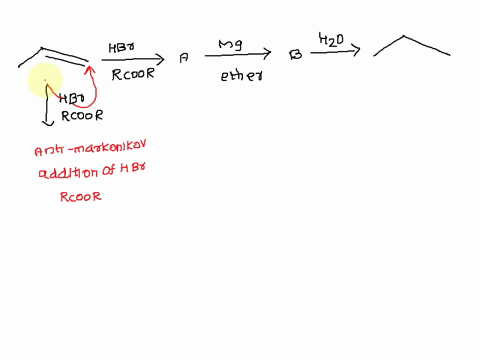 HBr
RCOOR
A
Mg
ether
B
H2O
HBr
RCOOR
Anti-markonikov
addition of HBr
RCOOR